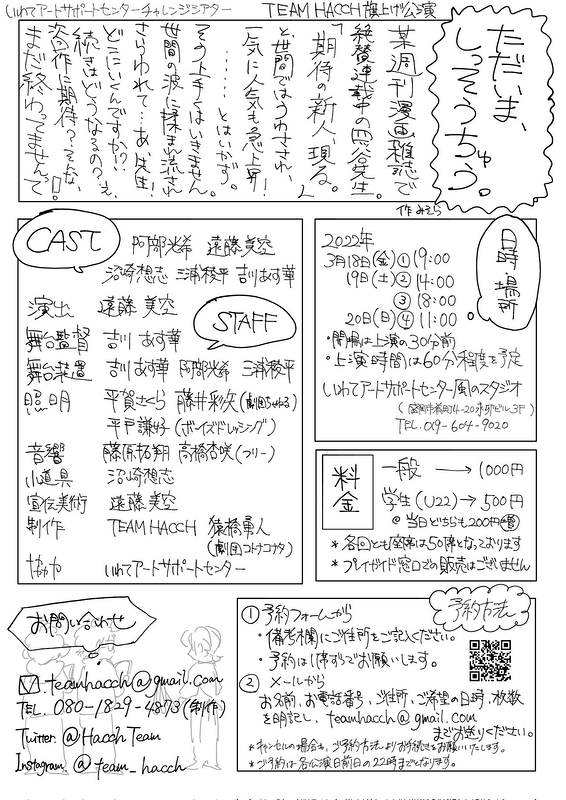 いわてアートサポートセンターチャレンジシアター
TEAM HACCH 旗上げ公演
ただいま、
しっそうちゅう。
某週刊漫画雑誌で
絶賛連載中の四谷先生。
「期待の新人現る。」
と世間ではうわさされ、
一気に人気も急上昇！
……とはいかず。
そう上手くはいきません。
世間の波に揉まれ流され
さらわれて…あ、先生！
どこにいくんですか!?
続きはどうなるの？え、
次作に期待？そんな、
まだ終わってませんって!!
作 みそら
CAST
阿部光希 遠藤美空
沼崎想志 三浦稜平 吉川あす華
STAFF
演出 遠藤美空
舞台監督 吉川あす華
舞台装置 吉川あす華 阿部光希 三浦稜平
照明 平賀さくら 藤井彩矢(劇団ちゅうる)
平戸謙好(ボーイズドレッシング)
音響 藤原拓翔 高橋杏咲(フリー)
小道具 沼崎想志
宣伝美術 遠藤美空
制作 TEAM HACCH 猿橋勇人
(劇団コトナコナタ)
協力 いわてアートサポートセンター
日時・場所
2022年
3月18日(金) ① 19:00
19日(土) ② 14:00
③ 18:00
20日(日) ④ 11:00
・開場は上演の30分前
・上演時間は60分程度を予定
いわてアートサポートセンター風のスタジオ
(盛岡市肴町4-20永卯ビル3F)
TEL.019-604-9020
料金
一般 → 1000円
学生(U22) → 500円
@当日どちらも200円増
*各回とも座席は50席となっております
*プレイガイド窓口での販売はございません
お問い合わせ
teamhacch@gmail.com
TEL. 080-1829-4873(制作)
Twitter. @HacchTeam
Instagram. @team_hacch
予約方法
① 予約フォームから
・備考欄にご住所をご記入ください。
・予約は1席ずつでお願いします。
② メールから
お名前、お電話番号、ご住所、ご希望の日時、枚数
を明記し、teamhacch@gmail.com
までお送りください。
*キャンセルの場合も、ご予約方法よりお手続きをお願いいたします。
*ご予約は各公演日前日の22時までとなります。